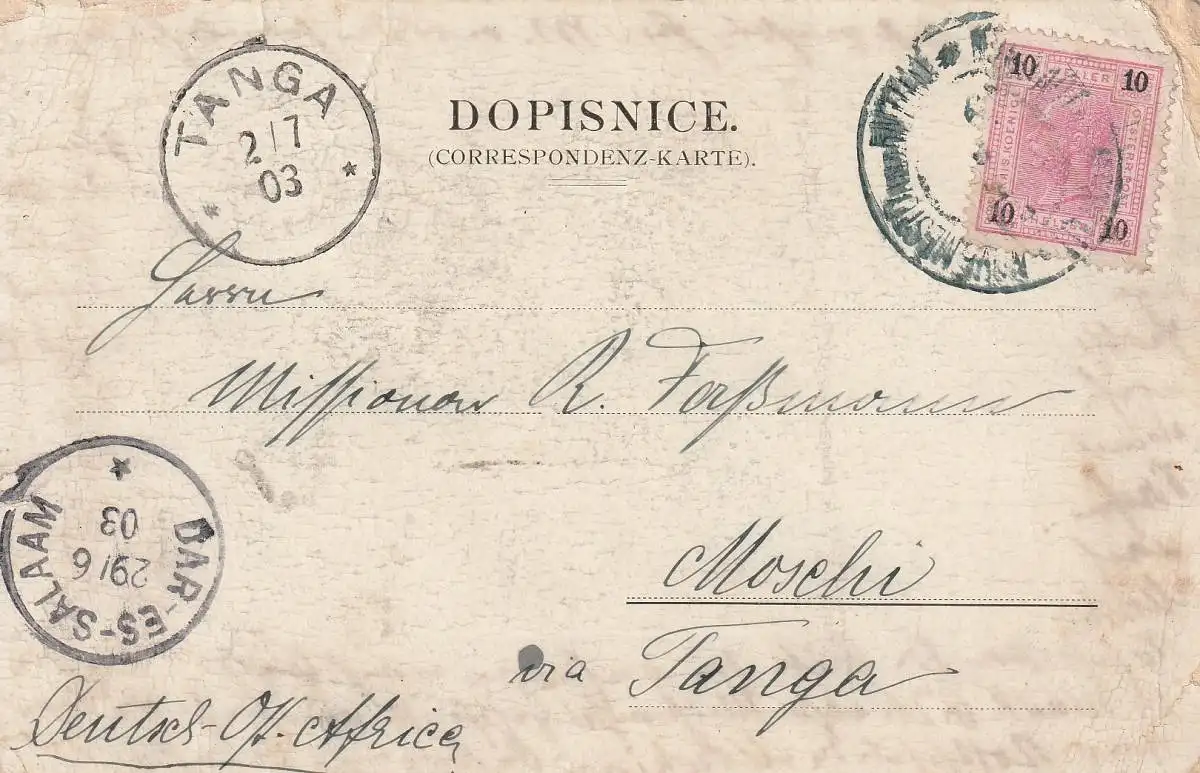 TANGA
2/7
03
DOPISNICE.
(CORRESPONDENZ-KARTE).
10
10
10
10
Herrn
Missionar R. Faßmann
DAR-ES-SALAAM
29/6
03
Moschi
via Tanga
Deutsch-Ost-Africa